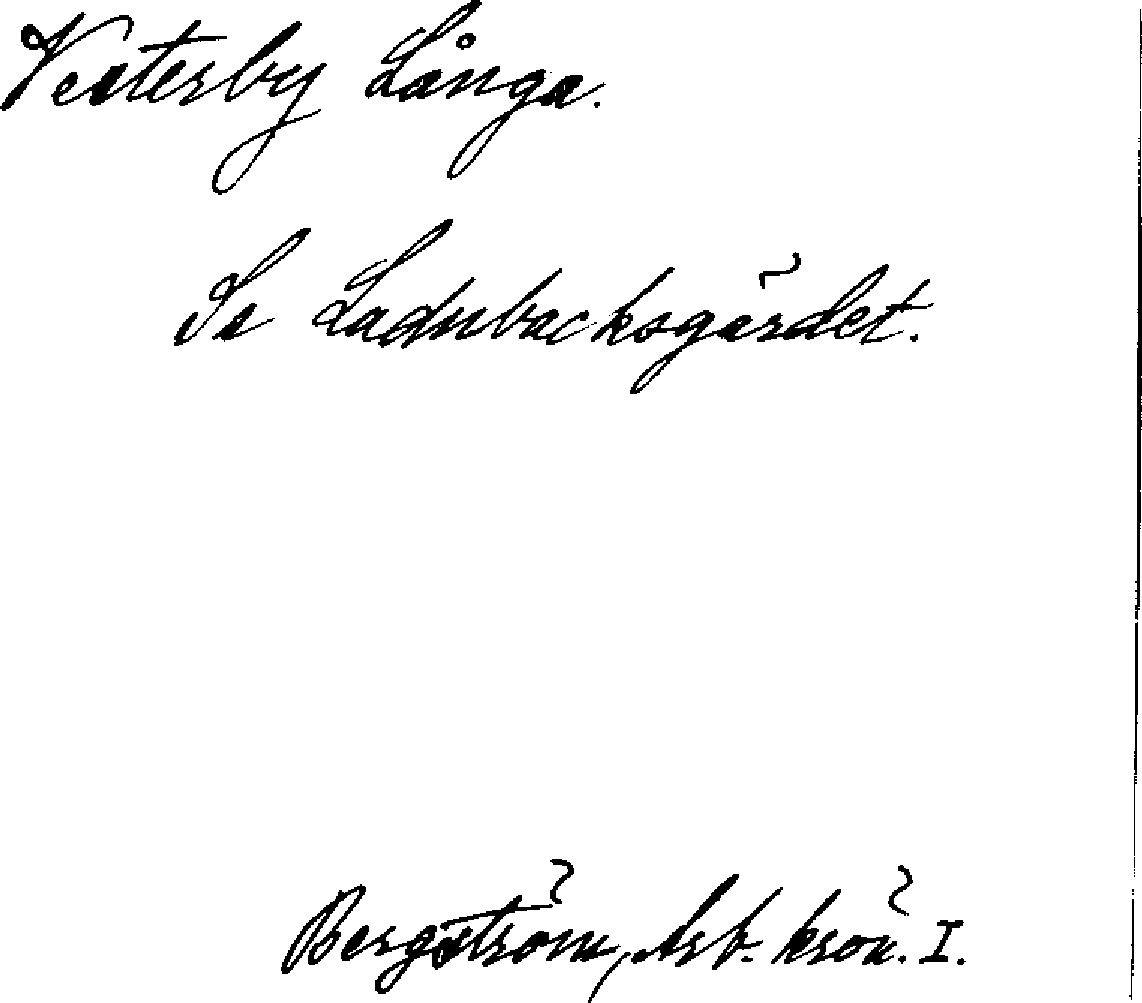 Vesterby Långa.
Se Ladubacksgärdet.
Bergström, Arb. krön. I.